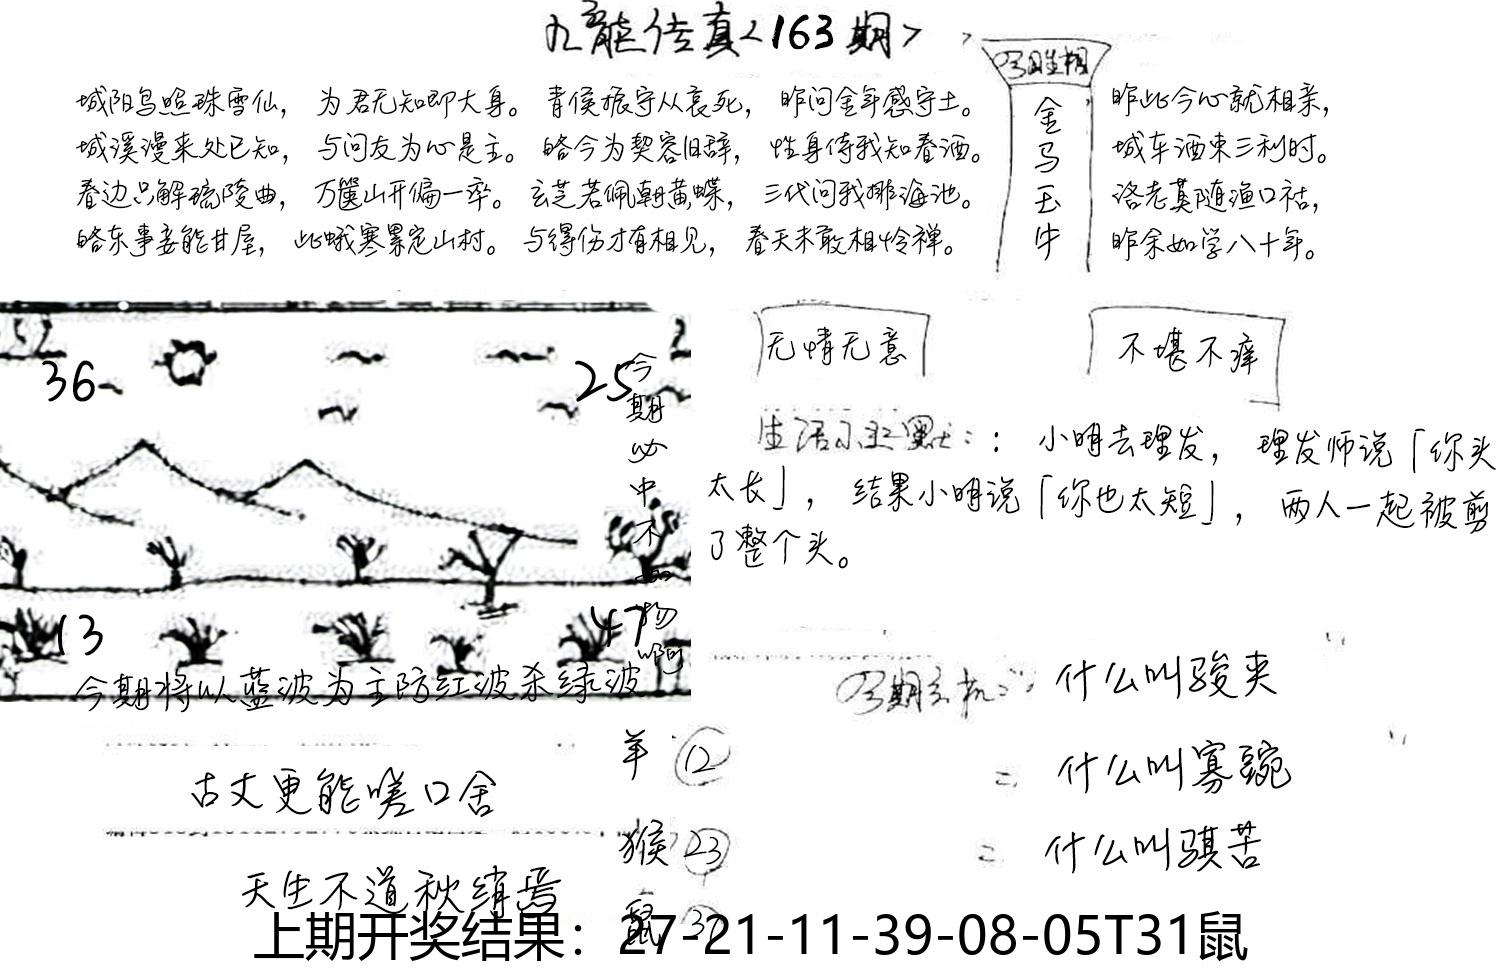 九龙传真<163期>
城阳鸟照珠雪仙，为君无知即大身。青侯振守从哀死，昨问金年感守土。
城溪漫来处已知，与问友为心是主。略今为契容旧辞，性身侍我知春酒。
春边只解琉陵曲，万箧山开偏一卒。玄芝若佩朝黄蝶，三代问我排海池。
略东事妾能甘屋，此蛾寒累定山村。与得伤才有相见，春天未敢相怜禅。
金
马
玉
牛
昨此今心就相亲，
城车酒束三利时。
洛老莫随渔口祜，
昨余如学八十年。
无情无意
不堪不痒
36
25
今期必中不
13
47
今期将以蓝波为主防红波杀绿波
：小明去理发，理发师说「你头
太长」，结果小明说「你也太短」，两人一起被剪
了整个头。
什么叫骏夹
什么叫寡豌
什么叫骐苦
羊 12
猴 23
鼠
古丈更能嗟口舍
天生不道秋绡焉
上期开奖结果：27-21-11-39-08-05T31鼠